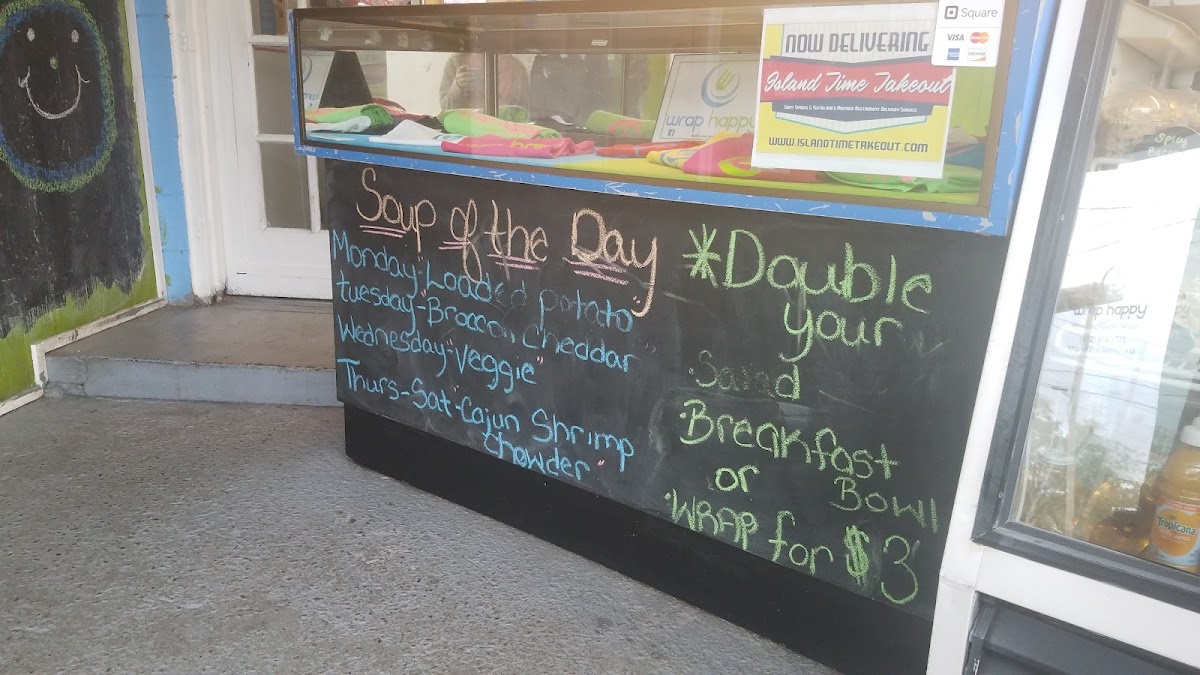 Soup of the Day
Monday-"Loaded potato"
tuesday-"Broccoli Cheddar
Wednesday-"Veggie"
Thurs-Sat-Cajun Shrimp
Chowder"
*Double
your
Salad
·Breakfast
or Bowl
·WRAP for $3
wrap happy
NOW DELIVERING
Island Time Takeout
WWW.ISLANDTIMETAKEOUT.COM
Square
VISA
wrap happy
Spicy
Tropicana